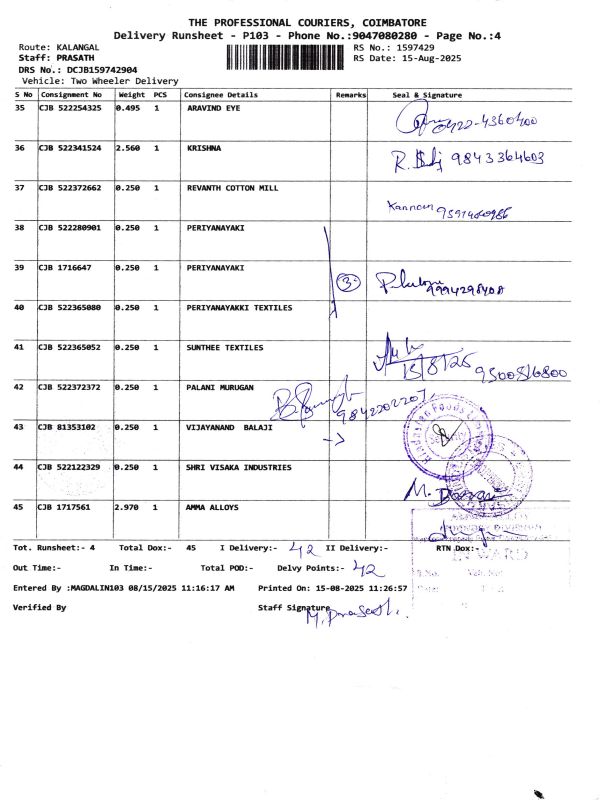 THE PROFESSIONAL COURIERS, COIMBATORE
Delivery Runsheet - P103 - Phone No.:9047080280 - Page No.:4
Route: KALANGAL RS No.: 1597429
Staff: PRASATH RS Date: 15-Aug-2025
DRS No.: DCJB159742904
Vehicle: Two Wheeler Delivery
S No Consignment No Weight PCS Consignee Details Remarks Seal & Signature
35 CJB 522254325 0.495 1 ARAVIND EYE 0422-4360400
36 CJB 522341524 2.560 1 KRISHNA 9843364603
37 CJB 522372662 0.250 1 REVANTH COTTON MILL Kannan
38 CJB 522280901 0.250 1 PERIYANAYAKI
39 CJB 1716647 0.250 1 PERIYANAYAKI 3
40 CJB 522365080 0.250 1 PERIYANAYAKKI TEXTILES
41 CJB 522365052 0.250 1 SUNTHEE TEXTILES 15/8/25
42 CJB 522372372 0.250 1 PALANI MURUGAN 9842202207
43 CJB 81353102 0.250 1 VIJAYANAND BALAJI
44 CJB 522122329 0.250 1 SHRI VISAKA INDUSTRIES M.
45 CJB 1717561 2.970 1 AMMA ALLOYS
Tot. Runsheet:- 4 Total Dox:- 45 I Delivery:- 42 II Delivery:- RTN Dox:-
Out Time:- In Time:- Total POD:- Delvy Points:- 42
Entered By :MAGDALIN103 08/15/2025 11:16:17 AM Printed On: 15-08-2025 11:26:57
Verified By Staff Signature M. Prasath.